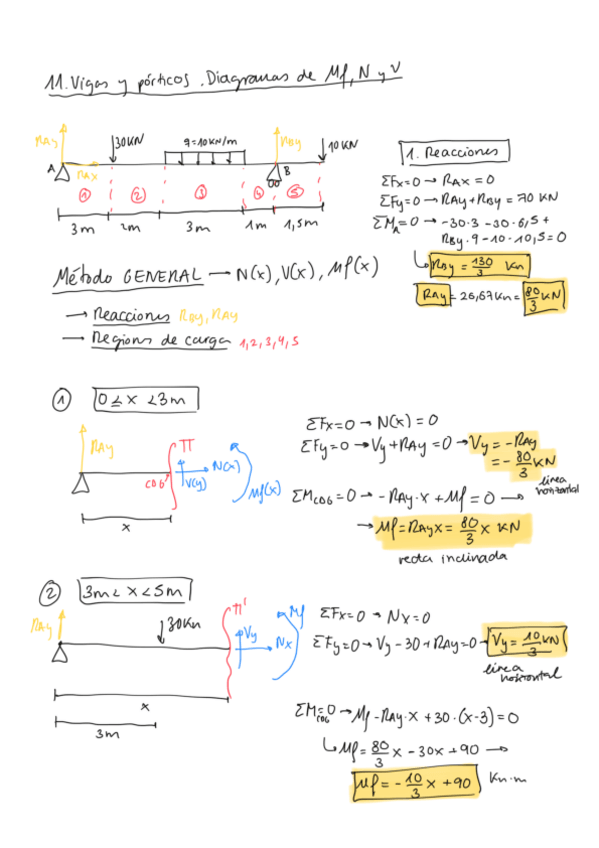 11. Vigas y pórticos. Diagramas de Mf, N y V
RAy 30KN q=10KN/m RBy 10KN
A RAx B
1 2 3 4 5
3m 2m 3m 1m 1,5m
1. Reacciones
ΣFx=0 → RAx = 0
ΣFy=0 → RAy+RBy = 70 KN
ΣMA=0 → -30·3 -30·6,5+
RBy·9-10·10,5=0
RBy = 130/3 Kn
RAy = 26,67Kn = 80/3 KN
Método GENERAL → N(x), V(x), Mf(x)
→ Reacciones RBy, RAy
→ Regions de carga 1,2,3,4,5
1 0 ≤ x < 3m
RAy π N(x)
CDG V(y) Mf(x)
x
ΣFx=0 → N(x) = 0
ΣFy=0 → Vy+RAy = 0 → Vy = -RAy
= -80/3 KN
línea horizontal
ΣMCDG=0 → -RAy·x + Mf = 0 →
→ Mf=RAyx = 80/3 x KN
recta inclinada
2 3m < x < 5m
RAy 30Kn π' Vy Nx Mf
x
3m
ΣFx=0 → Nx=0
ΣFy=0 → Vy-30+RAy=0 → Vy = 10/3 KN
línea horizontal
ΣMCDG=0 → Mf-RAy·x +30·(x-3)=0
Mf= 80/3 x -30x +90 →
Mf = -10/3 x +90 Kn·m